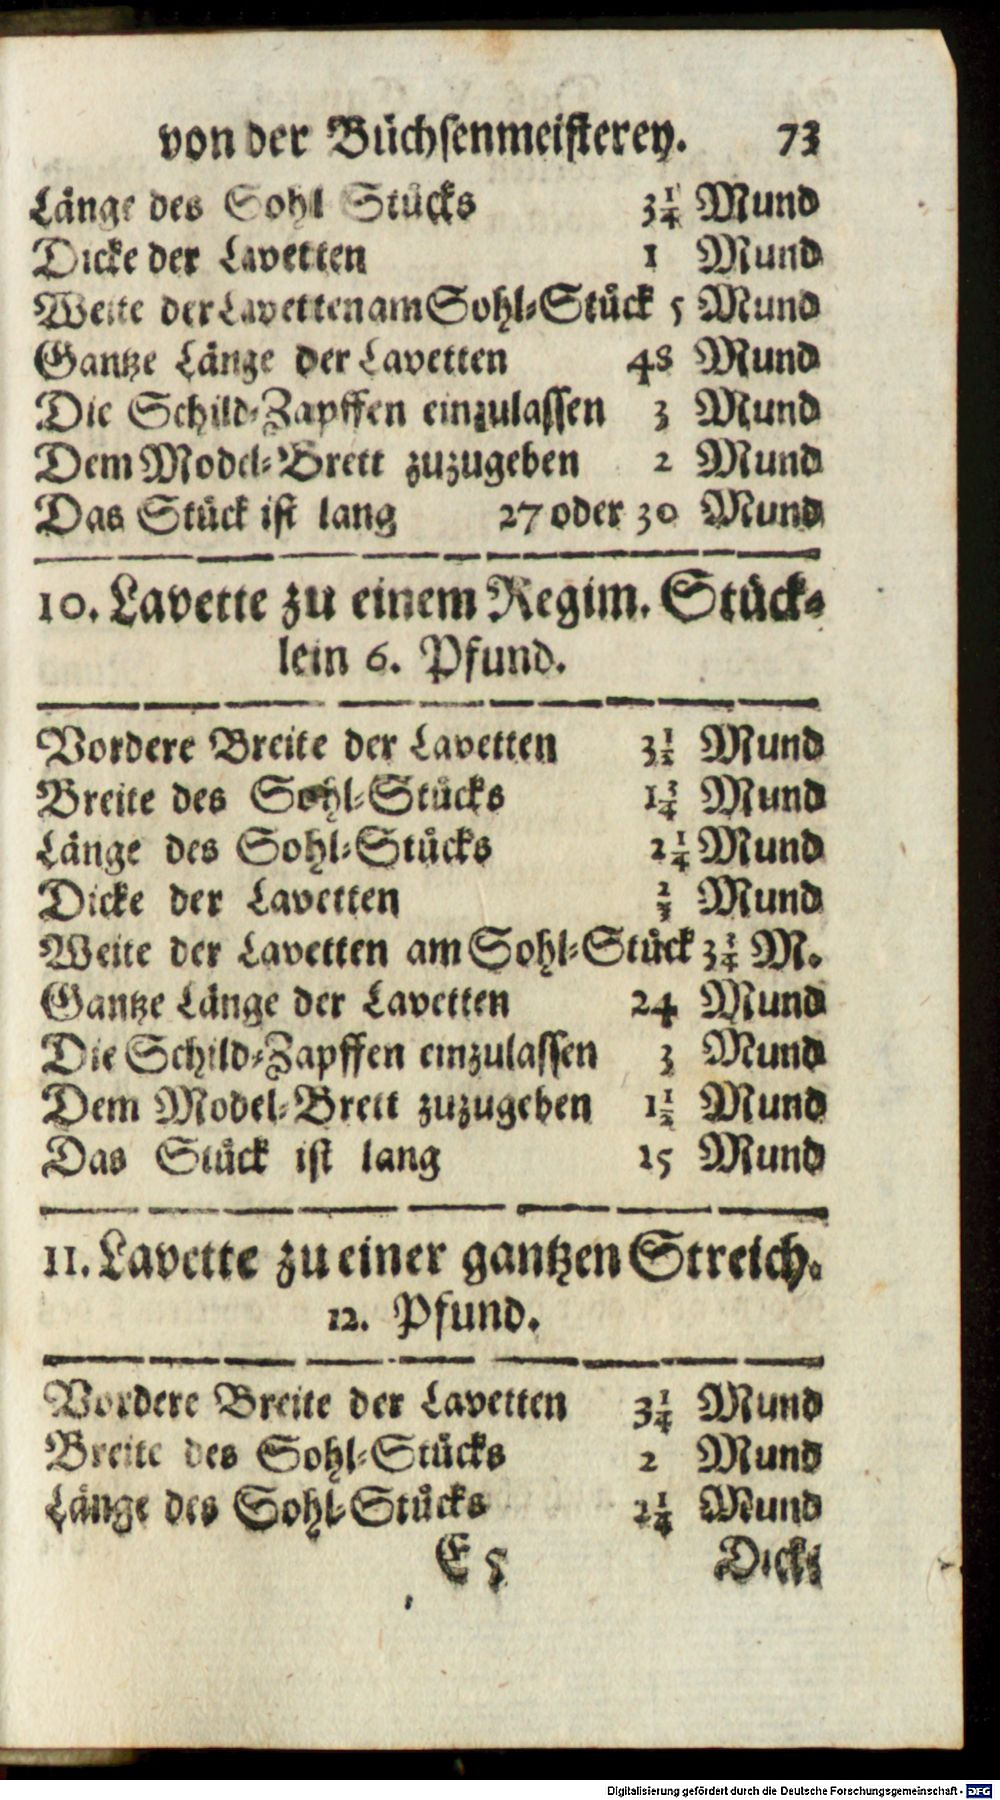 von der Büchsenmeisterey. 73
Länge des Sohl Stücks 3 1/4 Mund
Dicke der Lavetten 1 Mund
Weite der Lavetten am Sohl-Stück 5 Mund
Gantze Länge der Lavetten 48 Mund
Die Schild-Zapffen einzulassen 3 Mund
Dem Model-Brett zuzugeben 2 Mund
Das Stück ist lang 27 oder 30 Mund
10. Lavette zu einem Regim. Stück-
lein 6. Pfund.
Vordere Breite der Lavetten 3 1/2 Mund
Breite des Sohl-Stücks 1 3/4 Mund
Länge des Sohl-Stücks 2 1/4 Mund
Dicke der Lavetten 2/3 Mund
Weite der Lavetten am Sohl-Stück 3 3/4 M.
Gantze Länge der Lavetten 24 Mund
Die Schild-Zapffen einzulassen 3 Mund
Dem Model-Brett zuzugeben 1 1/2 Mund
Das Stück ist lang 15 Mund
11. Lavette zu einer gantzen Streich.
12. Pfund.
Vordere Breite der Lavetten 3 1/4 Mund
Breite des Sohl-Stücks 2 Mund
Länge des Sohl-Stücks 2 1/4 Mund
E 5 Dicke
Digitalisierung gefördert durch die Deutsche Forschungsgemeinschaft - DFG